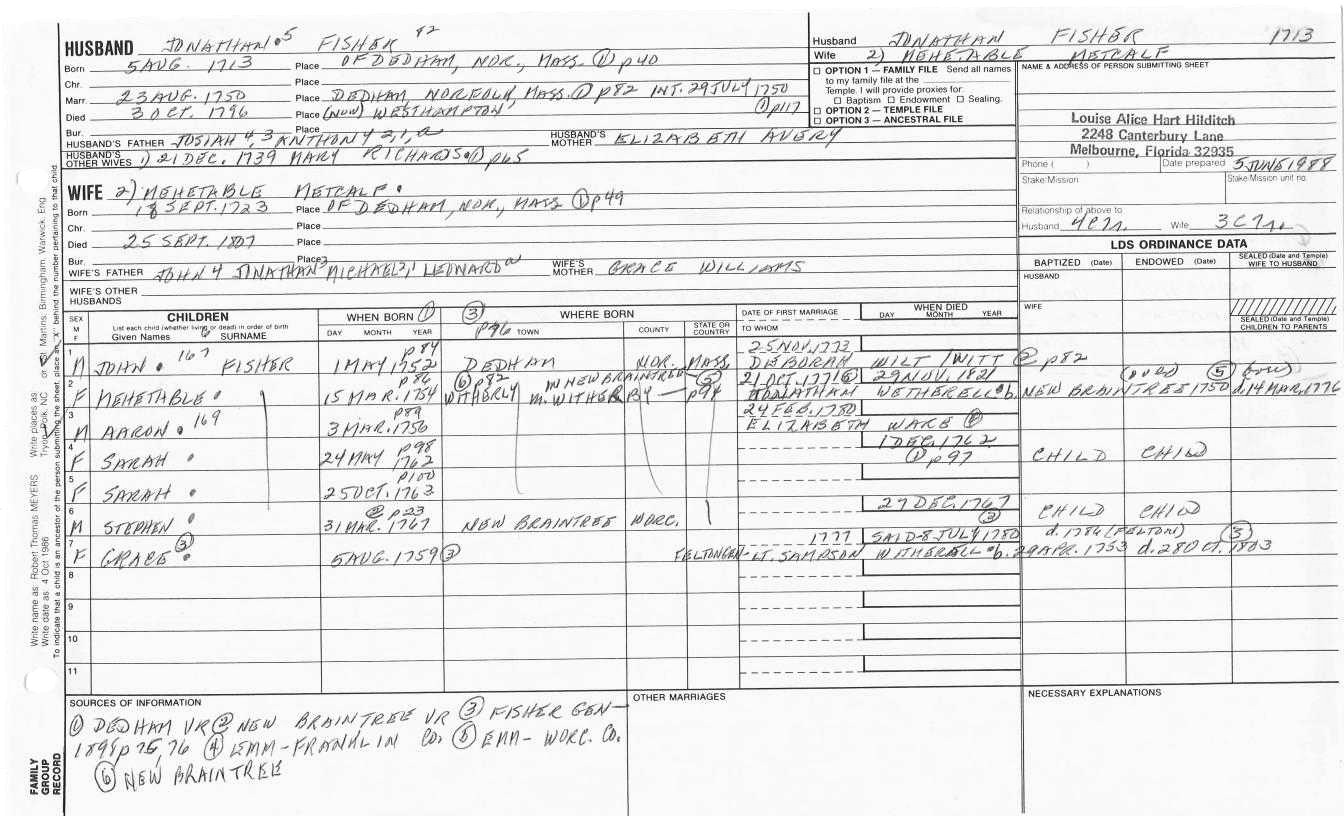 HUSBAND JONATHAN 5 FISHER 82
Born 5 AUG. 1713 Place OF DEDHAM, NOR., MASS. ① p40
Chr. Place
Marr. 23 AUG. 1750 Place DEDHAM, NORFOLK, MASS. ① p82 INT. 29 JULY 1750
Died 3 OCT. 1796 Place (NOW) WESTHAMPTON ① p117
Bur. Place
HUSBAND'S FATHER JOSIAH 4, 3 ANTHONY 4 2, 1, a HUSBAND'S MOTHER ELIZABETH AVERY
HUSBAND'S OTHER WIVES 1) 21 DEC. 1739 MARY RICHARDS ① p65
WIFE 2) MEHETABLE METCALF
Born 18 SEPT. 1723 Place OF DEDHAM, NOR., MASS ① p49
Chr. Place
Died 25 SEPT. 1807 Place
Bur. Place
WIFE'S FATHER JOHN 4 JONATHAN 3 MICHAEL 2, 1 LEONARD a WIFE'S MOTHER GRACE WILLIAMS
WIFE'S OTHER HUSBANDS
Husband JONATHAN FISHER 1713
Wife 2) MEHETABLE METCALF
☐ OPTION 1 — FAMILY FILE Send all names
to my family file at the
Temple. I will provide proxies for:
☐ Baptism ☐ Endowment ☐ Sealing.
☐ OPTION 2 — TEMPLE FILE
☐ OPTION 3 — ANCESTRAL FILE
NAME & ADDRESS OF PERSON SUBMITTING SHEET
Louise Alice Hart Hilditch
2248 Canterbury Lane
Melbourne, Florida 32935
Phone ( ) Date prepared 5 JUNE 1988
Stake/Mission Stake/Mission unit no.
Relationship of above to
Husband Wife
LDS ORDINANCE DATA
BAPTIZED (Date) ENDOWED (Date) SEALED (Date and Temple) WIFE TO HUSBAND
HUSBAND
WIFE
SEALED (Date and Temple) CHILDREN TO PARENTS
SEX M F CHILDREN WHEN BORN ① ③ WHERE BORN DATE OF FIRST MARRIAGE WHEN DIED
List each child (whether living or dead) in order of birth
Given Names SURNAME DAY MONTH YEAR p96 TOWN COUNTY STATE OR COUNTRY TO WHOM DAY MONTH YEAR
1 p84 25 NOV. 1773
M JOHN 167 FISHER 1 MAY 1752 DEDHAM NOR. MASS. DEBORAH WILT /WITT ② p82
2 p86 ⑥ p82 m NEW BRAINTREE ⑤ 21 OCT. 1771 ⑥ 29 NOV. 1821 ⑤
F MEHETABLE 15 MAR. 1754 WITHERLY m. WITHERBY p94 JONATHAN WETHERELL b. NEW BRAINTREE 1750 d. 14 MAR. 1776
3 p89 24 FEB. 1780
M AARON 169 3 MAR. 1756 ELIZABETH WARE ⑥
4 p98 1 DEC. 1762
F SARAH 24 MAY 1762 ① p97 CHILD CHILD
5 p100
F SARAH 25 OCT. 1763
6 ② p23 27 DEC. 1767
M STEPHEN 31 MAR. 1767 NEW BRAINTREE WORC. ③ CHILD CHILD
7 ③ 1777 SAID-8 JULY 1780 d. 1786 (FELTON) ③
F GRACE 5 AUG. 1759 ③ FELTON GEN- LT. SAMPSON WITHERELL b. 29 APR. 1753 d. 28 OCT. 1803
8
9
10
11
SOURCES OF INFORMATION
① DEDHAM VR ② NEW BRAINTREE VR ③ FISHER GEN-
1898 p 75, 76 ④ EMM-FRANKLIN CO. ⑤ EMM- WORC. CO.
⑥ NEW BRAINTREE
OTHER MARRIAGES
NECESSARY EXPLANATIONS
Write name as: Robert Thomas MEYERS Write places as
Write date as: 4 Oct 1986 Tryon, Polk, NC or St. Martins, Birmingham, Warwick, Eng.
To indicate that a child is an ancestor of the person submitting the sheet, place an "X" behind the number pertaining to that child.
FAMILY
GROUP
RECORD